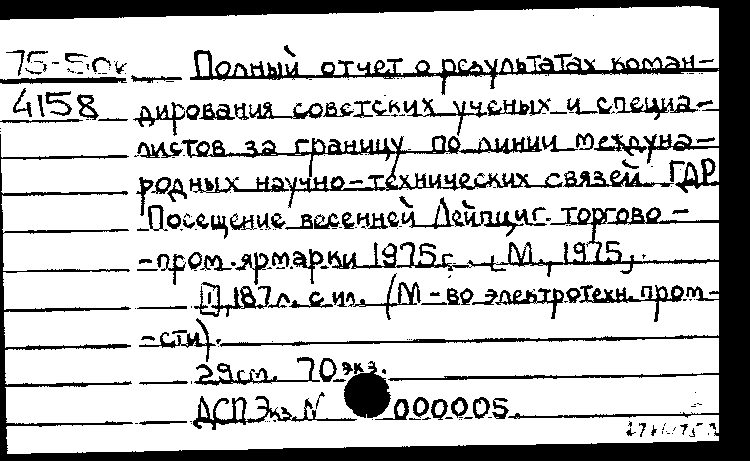 75-5ок Полный отчет о результатах коман-
4158 дирования советских ученых и специа-
листов за границу по линии междуна-
родных научно-технических связей. ГДР
Посещение весенней Лейпциг. торгово-
-пром. ярмарки 1975г. М., 1975,
[1], 187л. с ил. (М-во электротехн. пром-
-сти).
29см. 70экз.
ДСП Экз. N 000005.